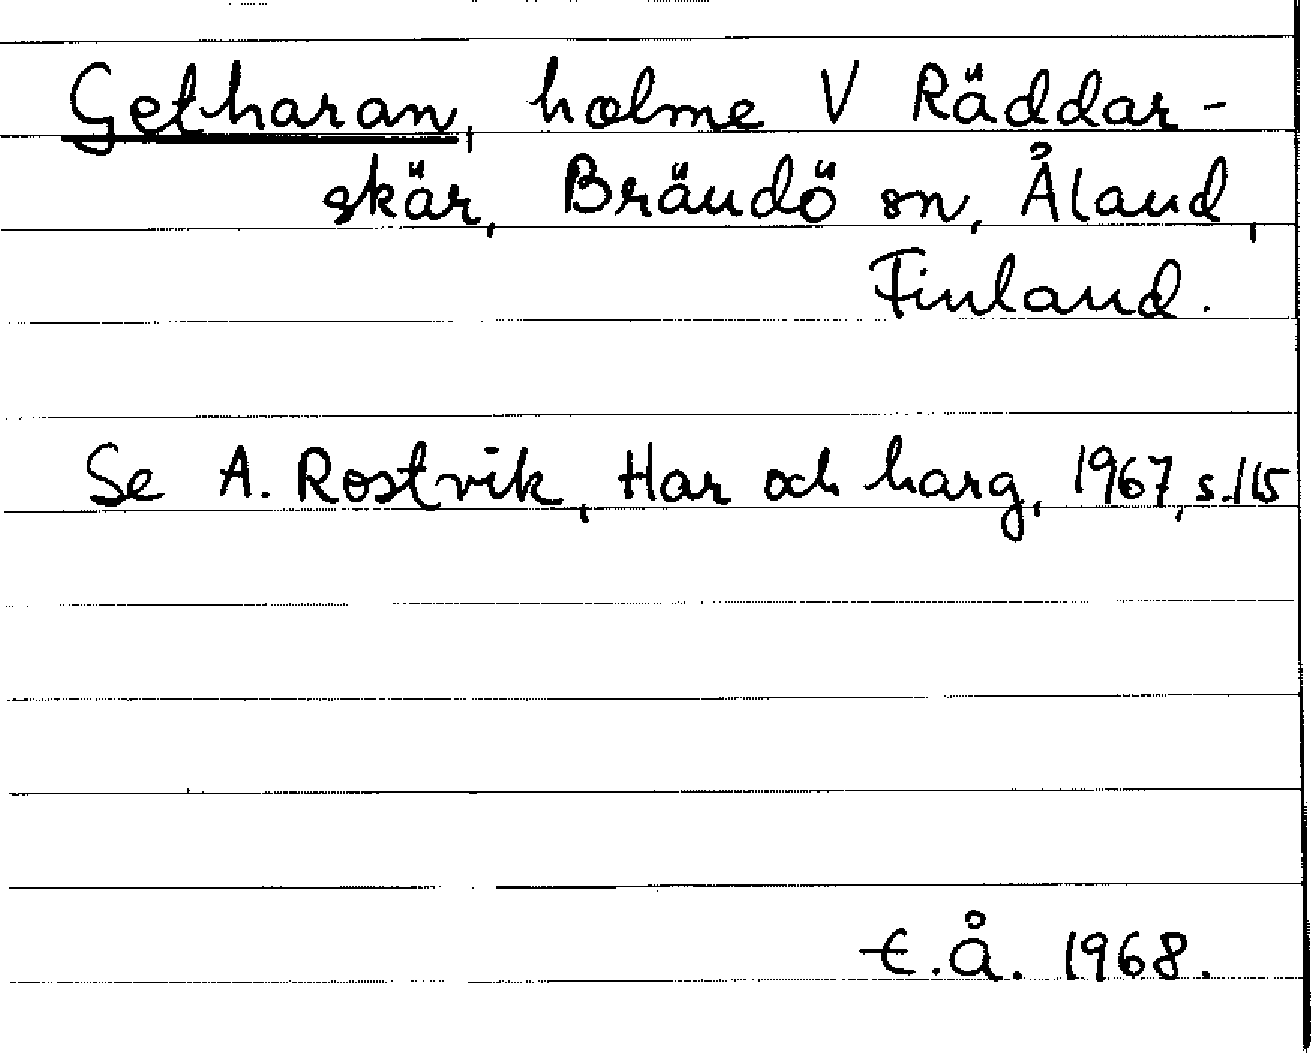 Getharan, holme V Räddar-
skär, Brändö sn, Åland,
Finland.
Se A. Rostvik, Har och harg, 1967, s. 115
E.Å. 1968.